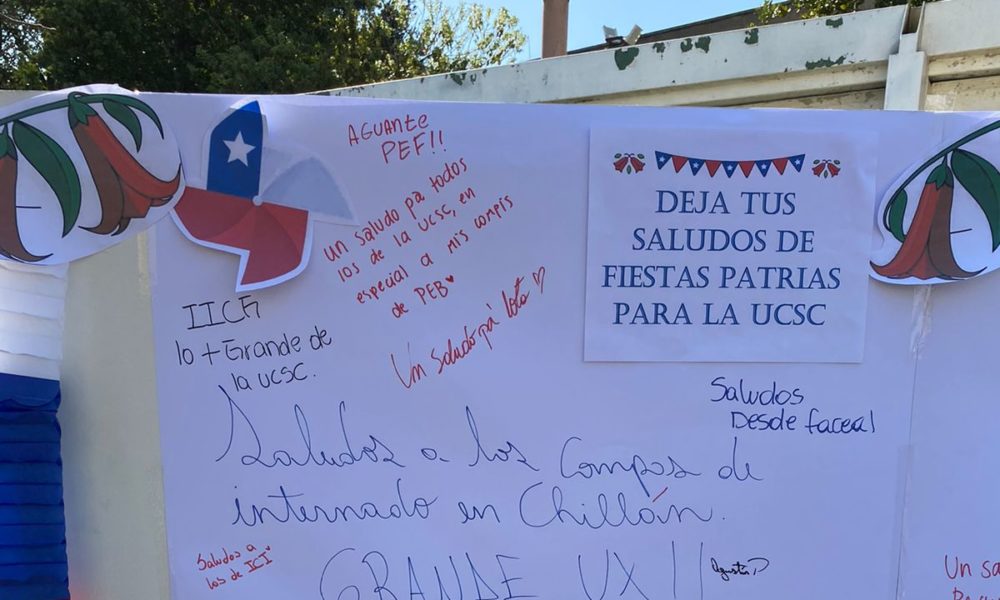 AGUANTE
PEF!!
un saludo pa todos
los de la UCSC, en
especial a mis compis
de PEB
Un saludo pa' lota
DEJA TUS
SALUDOS DE
FIESTAS PATRIAS
PARA LA UCSC
lo + Grande de
la UCSC.
Saludos
Desde faceal
Saludos a los compas de
internado en Chillán.
Saludos a
los de ICI
GRANDE UX!!
Un sa